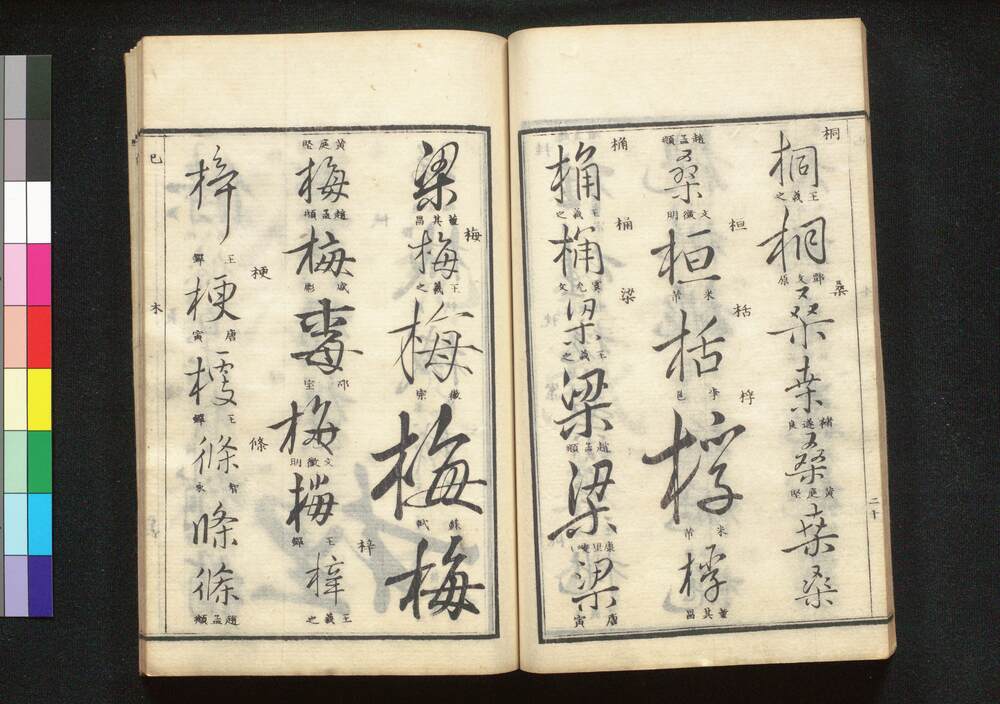 桐
桐
王羲之
桐
鄧文原
桑
桑
桒
褚遂良
桑
黄庭堅
桒
桑
二十
趙孟頫
桑
文徵明
桓
桓
米芾
栝
栝
李邕
桴
桴
米芾
桴
董其昌
桷
桷
王羲之
桶
桶
虞允文
梁
梁
王羲之
梁
趙孟頫
梁
康里巎
梁
唐寅
梁
董其昌
梅
梅
王羲之
梅
徽宗
梅
蘇軾
梅
黄庭堅
梅
趙孟頫
梅
梅
文徵明
梅
王鐸
梓
梓
王羲之
梓
王鐸
梗
梗
唐寅
王鐸
條
條
智永
條
條
趙孟頫
巳
木